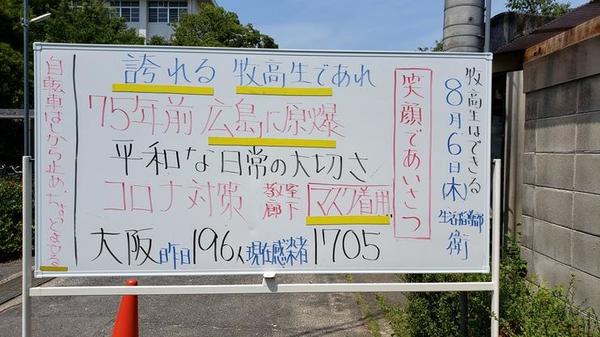 牧高生はできる
8月6日(木)
生活指導部
衛
笑顔であいさつ
誇れる 牧高生であれ
75年前 広島に原爆
平和な日常の大切さ
コロナ対策 教室 廊下 マスク着用
大阪昨日196人現在感染者1705
自転車はしから止めたなどとする